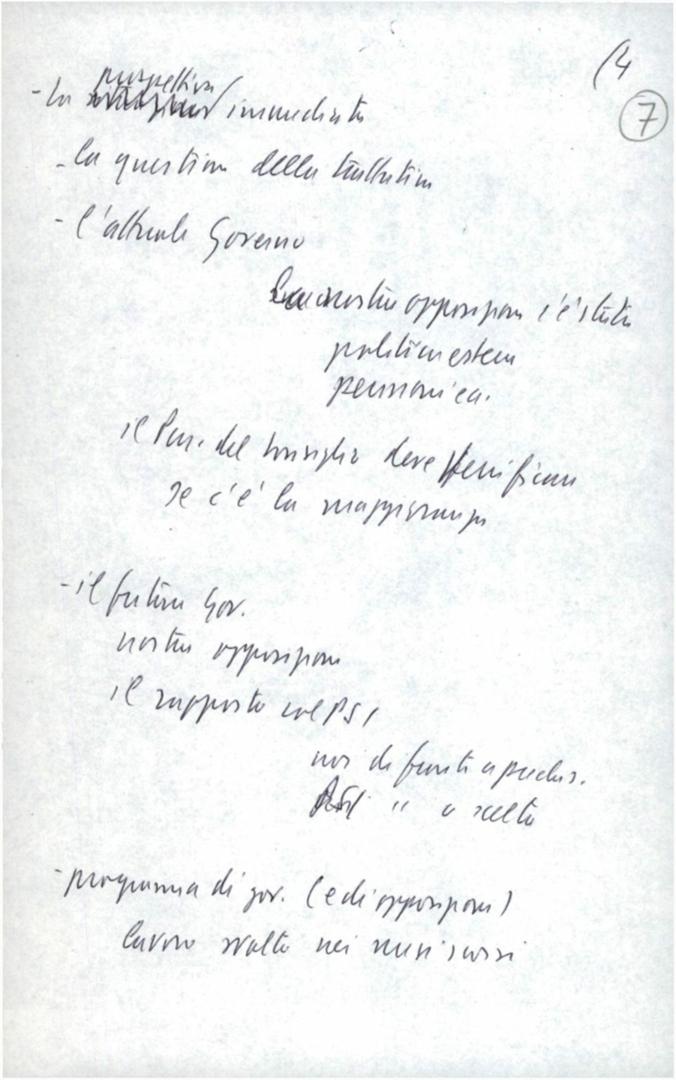 (4
7
prospettiva
- la situazione immediata
- la questione della trattativa
- l'attuale Governo
La nostra opposizione c'è stata
politica estera
economica.
il Pres. del Consiglio deve verificare
se c'è la maggioranza
- il futuro Gov.
nostra opposizione
il rapporto col PSI
noi di fronte a
PSI " a scelta
- programma di gov. (e di opposizione)
lavoro svolto nei mesi scorsi